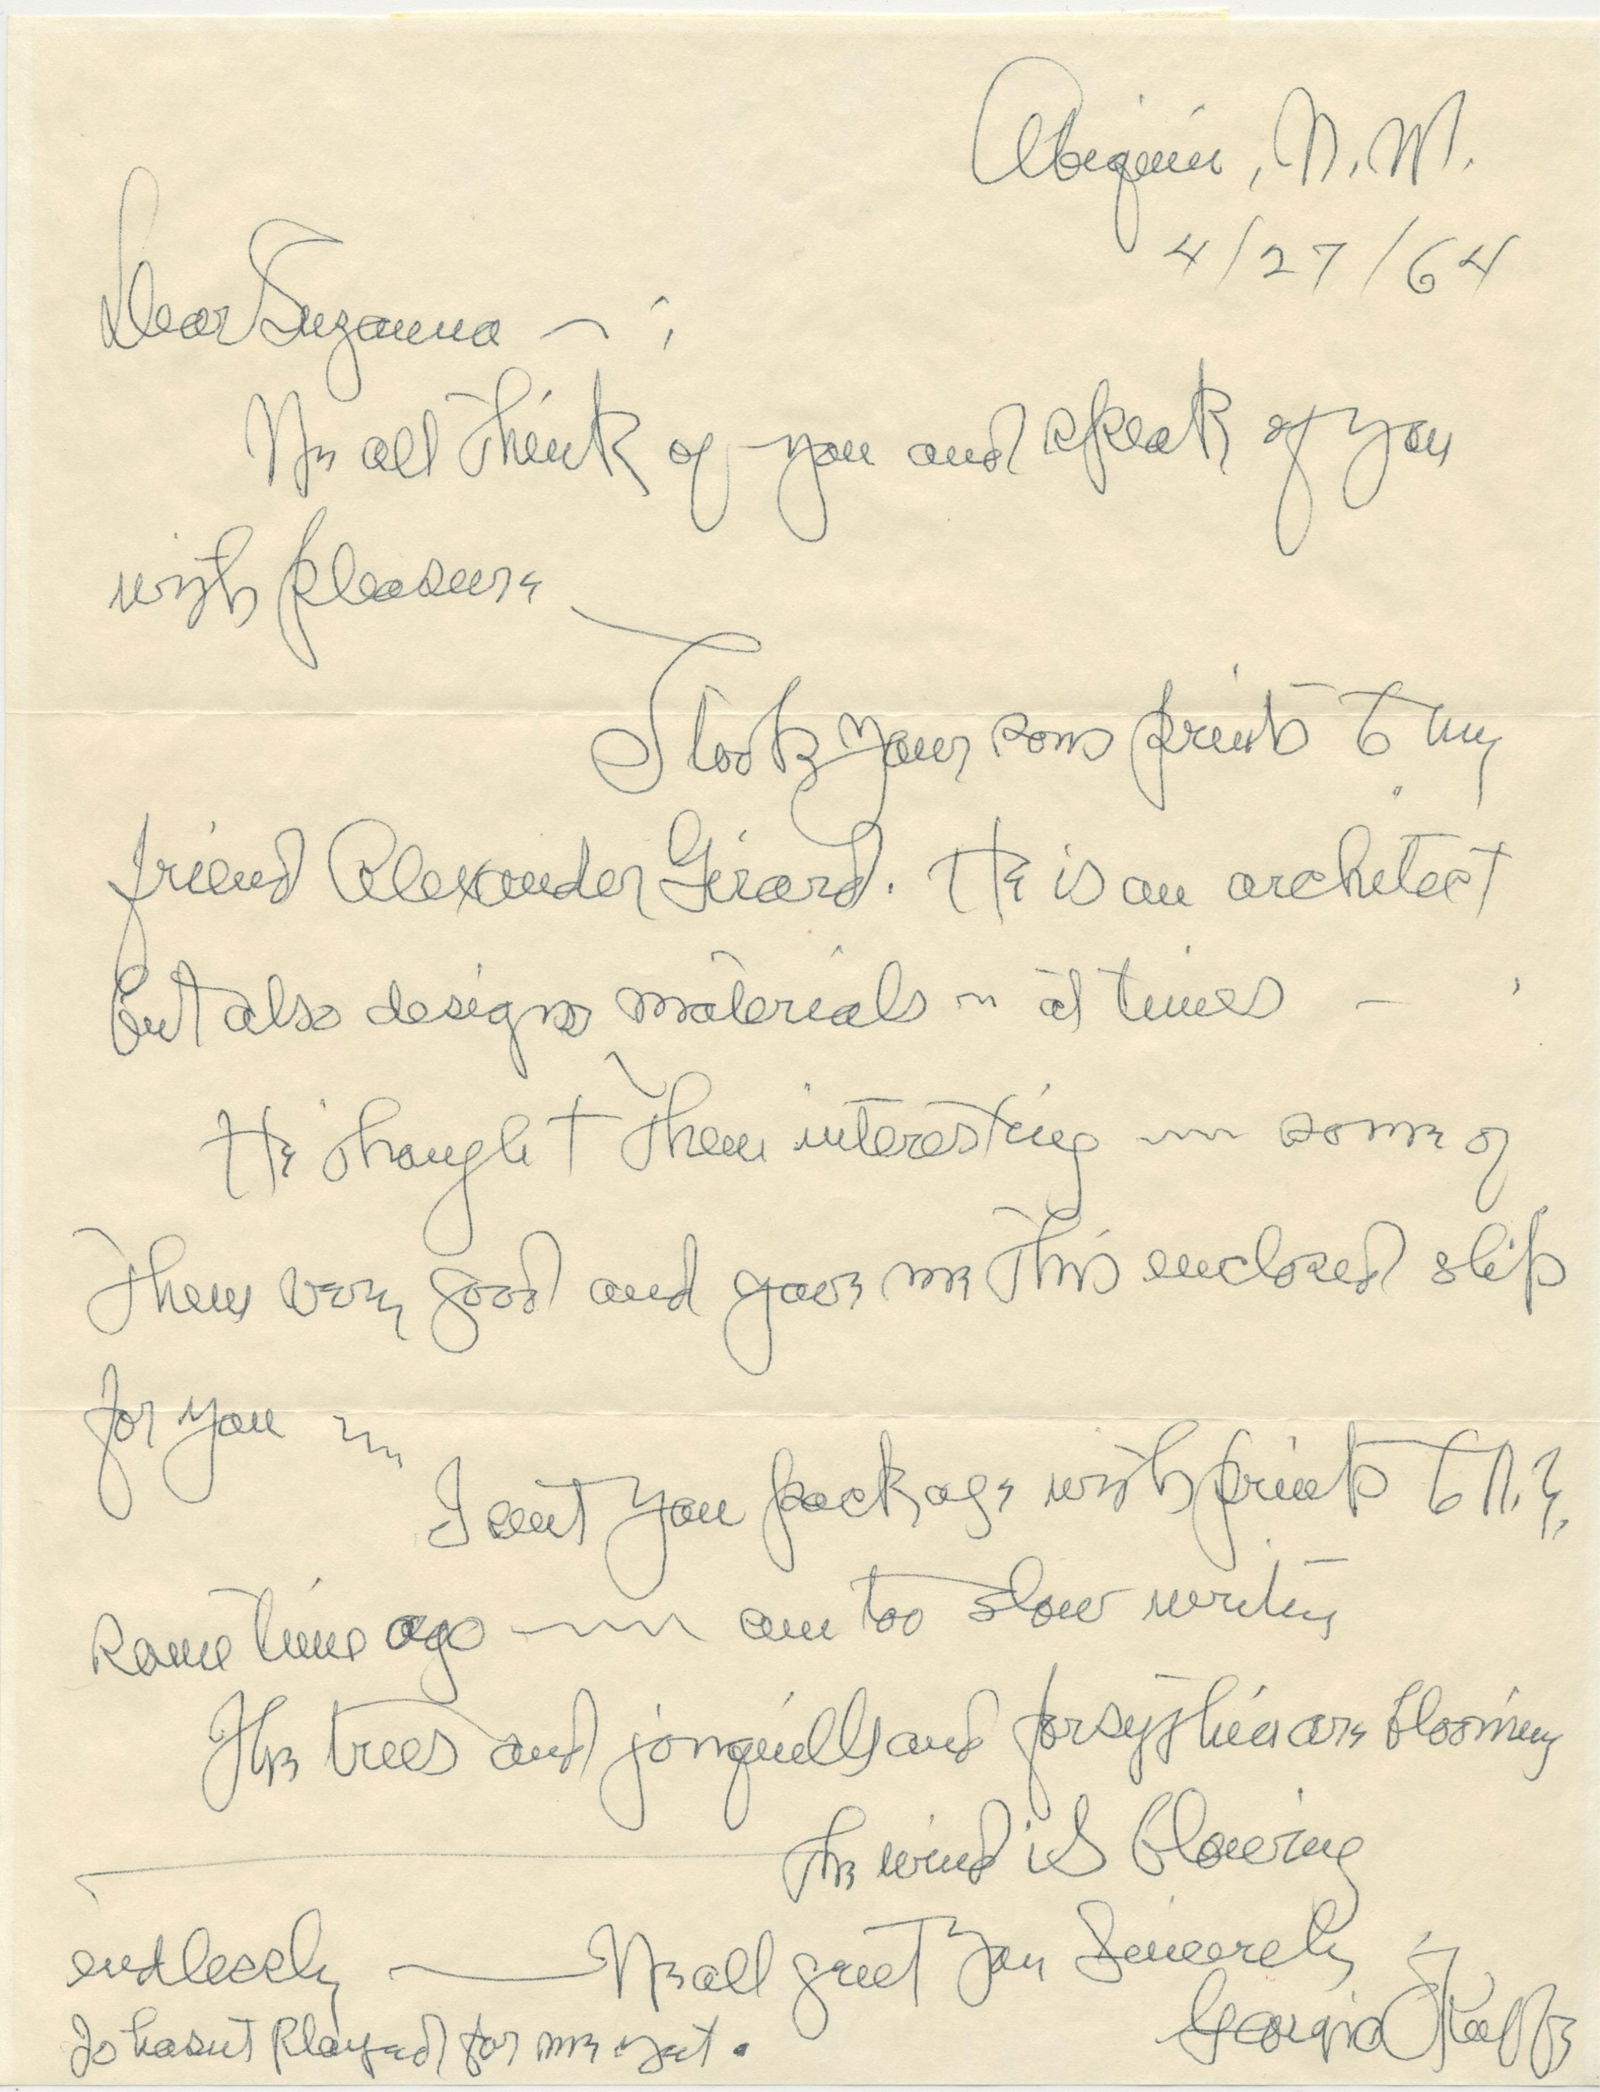 Abiquiu, N.M.
4/27/64
Dear Suzanna — :
We all think of you and speak of you
with pleasure —
I took your sons prints to my
friend Alexander Girard. He is an architect
but also designs materials ~ at times —
He thought them interesting ~ some of
them very good and gave me this enclosed slip
for you ~
I sent you package with prints to N.Y.
some time ago ~ am too slow writing
The trees and jonquills and forsythia are blooming
— The wind is blowing
endlessly — We all greet you Sincerely
Georgia O'Keeffe
Jo hasn't played for me yet.